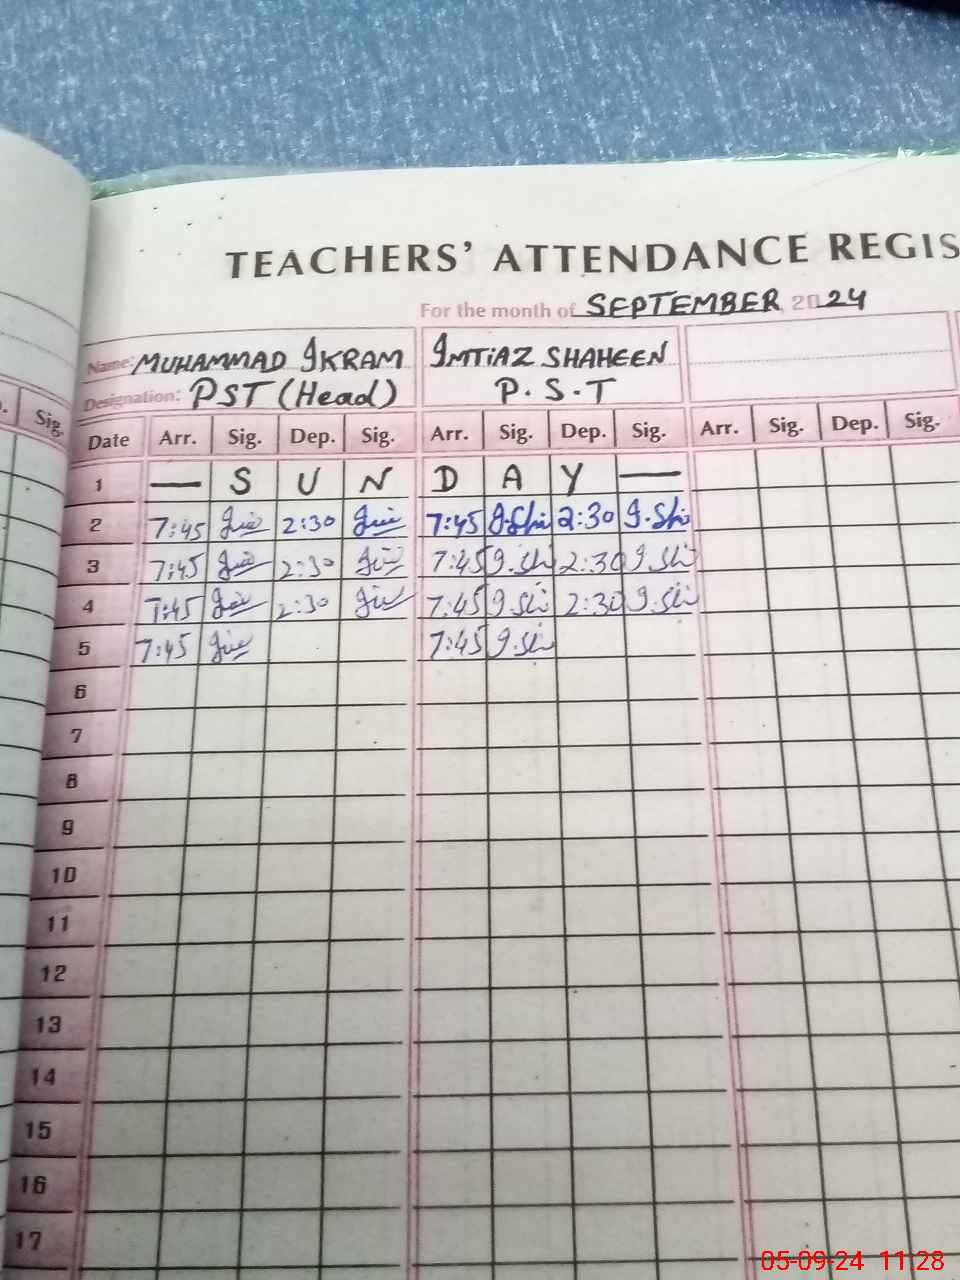 TEACHERS' ATTENDANCE REGIS
For the month of SEPTEMBER 2024
Name: MUHAMMAD IKRAM IMTIAZ SHAHEEN
Designation: PST (Head) P.S.T
Sig. Date Arr. Sig. Dep. Sig. Arr. Sig. Dep. Sig. Arr. Sig. Dep. Sig.
1 — S U N D A Y —
2 7:45 2:30 7:45 g.Shi 2:30 g.Shi
3 7:45 2:30 7:45 g.Shi 2:30 g.Shi
4 7:45 2:30 7:45 g.Shi 2:30 g.Shi
5 7:45 7:45 g.Shi
6
7
8
9
10
11
12
13
14
15
16
17
05-09-24 11:28